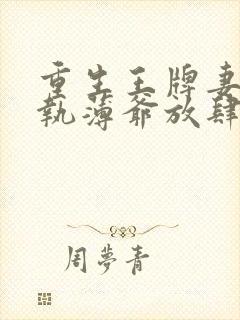 重生王牌妻
執薄爺放肆
周夢青